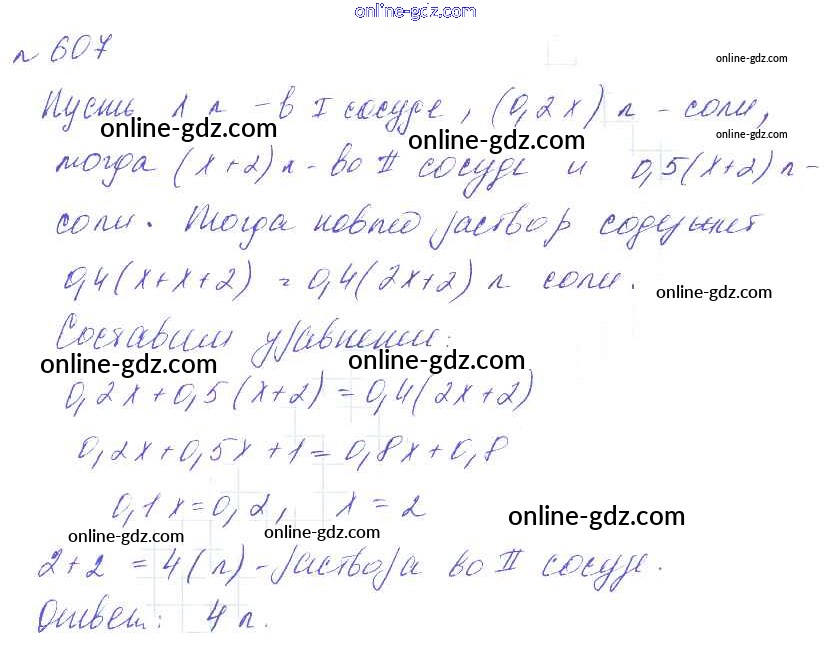 online-gdz.com
№ 607
online-gdz.com
Пусть х л - в I сосуде, (0,2х) л - соли,
online-gdz.com online-gdz.com online-gdz.com
тогда (х+2) л - во II сосуде и 0,5(х+2) л -
соли. Тогда новый раствор содержит
0,4(х+х+2) = 0,4(2х+2) л соли.
online-gdz.com
Составим уравнение:
online-gdz.com online-gdz.com
0,2х+0,5(х+2)=0,4(2х+2)
0,2х+0,5х+1=0,8х+0,8
0,1х=0,2, х=2
online-gdz.com
online-gdz.com online-gdz.com
2+2 = 4(л) - раствора во II сосуде.
Ответ: 4 л.